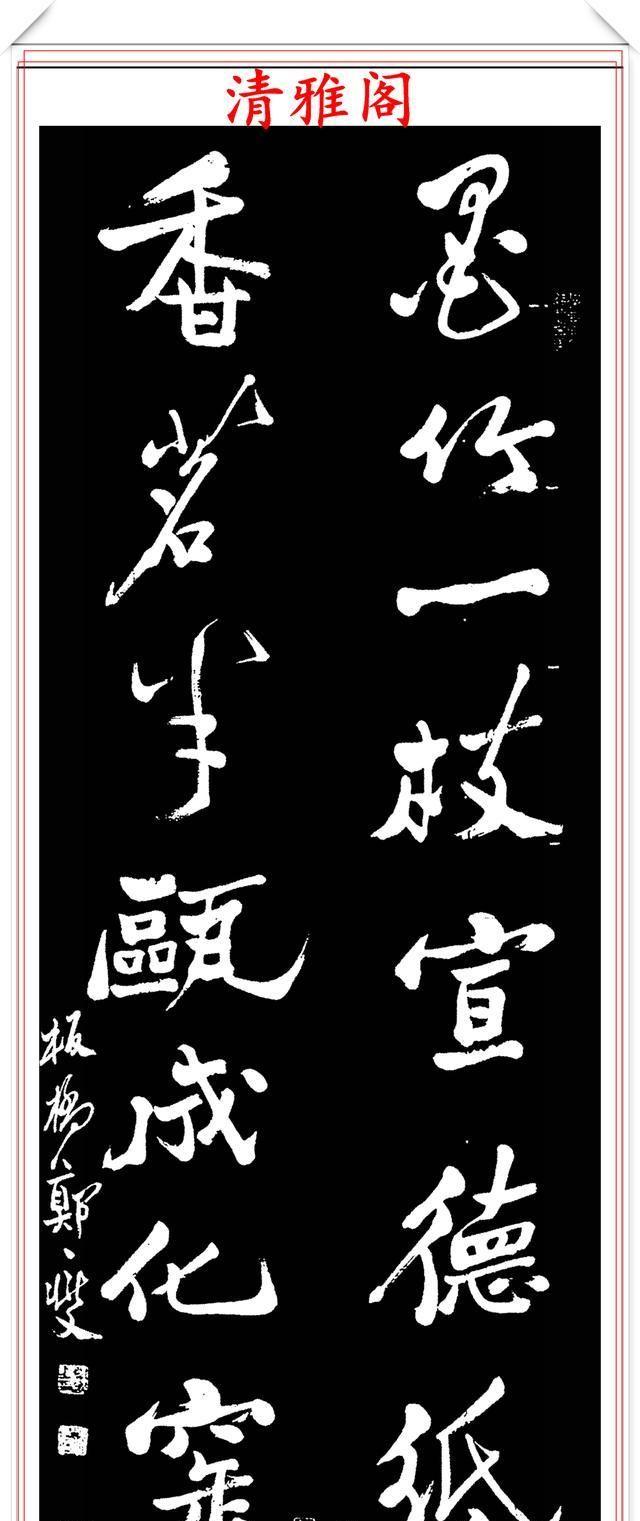 清雅阁
墨竹一枝宣德纸
香茗半甌成化窑
板橋鄭燮